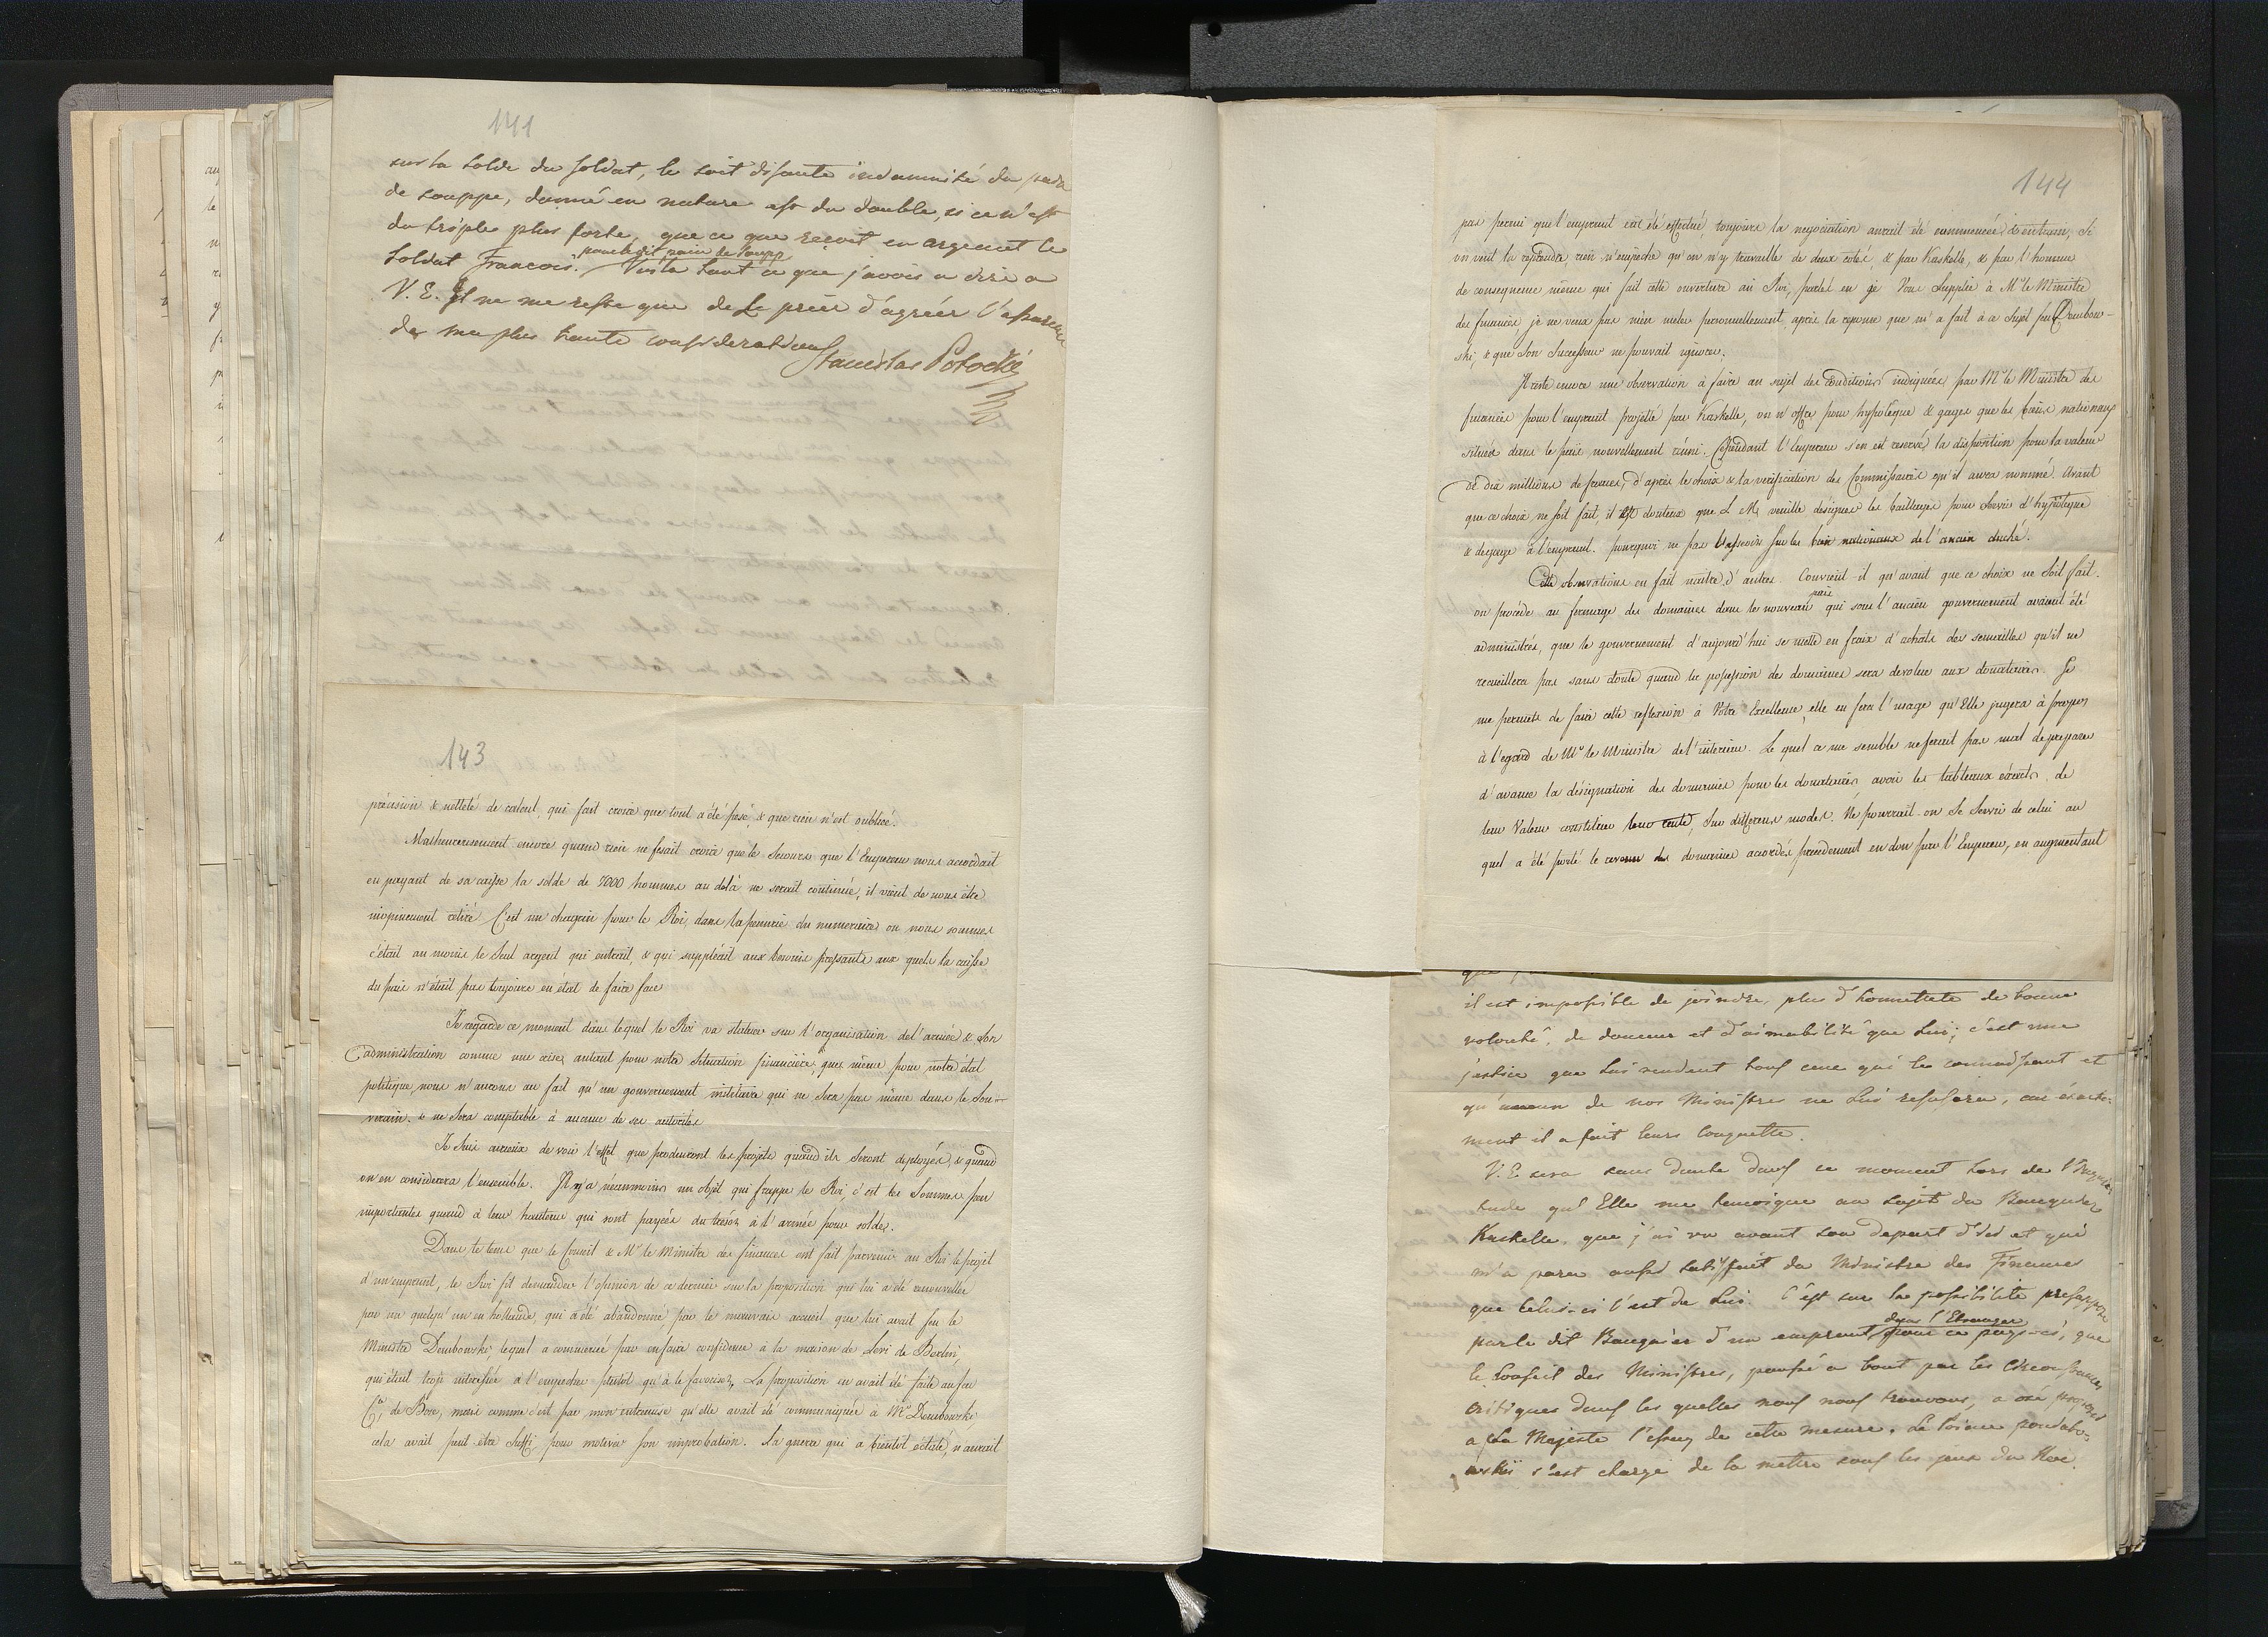 141
sur la solde du soldat, le soit disante indamnité du pain
de souppe, donné en nature est du double, si ce n'est
du triple plus forte, que ce que reçoit en argent le
soldat Francois. pour le dit pain de soupp Voila tout ce que j'avois a dire a
V. E. Il ne me reste que de le prier d'agréer l'assurance
de ma plus haute consideration
Stanislas Potocki
143
précision & netteté de calcul, qui fait croire que tout a été pesé, & que rien n'est oublié.
Malheureusement encore quand rien ne fesait croire que le secours que l'Empereur nous accordait
en payant de sa caisse la solde de 7000 hommes au delà ne serait continué, il vient de nous être
inopinement retiré. C'est un chagrin pour le Roi, dans la penurie du numeraire ou nous sommes
c'était au moins le seul argent qui entrait, & qui suppléait aux besoins pressants aux quels la caisse
du païs n'était pas toujours en état de faire face
Je regarde ce moment dans lequel le Roi va statuer sur l'organisation de l'armée & son
administration comme une crise, autant pour notre situation financière, que même pour notre état
politique, nous n'aurons au fait qu'un gouvernement militaire qui ne sera pas même dans le Sou-
verain, & ne sera comptable à aucune de ses autorités
Je suis curieux de voir l'effet que produiront les projets quand ils seront deployés, & quand
on en considerera l'ensemble. Il y a néanmoins un objet qui frappe le Roi, c'est les sommes peu
importantes quand à leur hauteur qui sont payées du trésor à l'armée pour solde.
Dans le tems que le Conseil & Mr le Ministre des finances ont fait parvenir au Roi le projet
d'un emprunt, le Roi fit demander l'opinion de ce dernier sur la proposition qui lui a été renouvellée
par un quelqu'un en hollande, qui a été abandonné par le mauvais accueil que lui avait feu le
Ministre Dembowski, lequel a commencé par en faire confidence à la maison de Levi de Berlin,
qui était trop interessée à l'empecher plutot qu'à le favoriser. La proposition en avait été faite au feu
Cte de Bose, mais comme c'est par mon entremise qu'elle avait été communiquée à Mr Dembowski
cela avait peut être suffi pour motiver son improbation. La guerre qui a bientôt éclaté, n'aurait
144
pas permi que l'emprunt eut été effectué, toujours la negociation aurait été commencée & entram, Si
on veut la reprendre, rien n'empêche qu'on n'y travaille de deux cotés, & par Kaskelle, & par l'homme
de consequence même qui fait cette ouverture au Roi, parlez en je Vous Supplie à Mr le Ministre
des finances je ne veux pas m'en meler personnellement, après la reponse que m'a fait à ce Sujet feu Dembow-
ski, & que son Successeur ne pouvait ignorer.
Il reste encore une observation à faire au sujet des conditions indiquées par Mr le Ministre des
finances pour l'emprunt projetté par Kaskelle, on n'offre pour hypotèque & gages que les biens nationaux
situés dans le païs nouvellement réuni. Cependant l'Empereur s'en est reservé la disposition pour la valeur
de dix millions de francs, d'après le choix & la verification des Commissaires qu'il aura nommé. Avant
que ce choix ne soit fait, il est douteux que S. M. veuille désigner les bailliages pour servir d'hypotèque
& de gage à l'emprunt. pourquoi ne pas l'asseoir sur les bien nationaux de l'ancien duché.
Cette observations en fait naitre d'autres. Convient-il qu'avant que ce choix ne soit fait.
on procède au fermage des domaines dans le nouveau païs qui sous l'ancien gouvernement avaient été
administrés, que le gouvernement d'aujourd'hui se mette en fraix d'achats des semailles qu'il ne
recueillera pas sans doute quand la possession des domaines sera devolue aux donataires. Je
me permets de faire cette reflexion à Votre Excellence, elle en fera l'usage qu'Elle jugera à propos
à l'egard de Mr le Ministre de l'interieur. Le quel ce me semble ne ferait pas mal de preparer
d'avance la désignation des domaines pour les donataires, avoir les tableaux exacts, de
leur valeur constituer leur rente, sur differens modes. Ne pourrait-on se servir de celui au
quel a été porté le revenu des domaines accordés precedement en don par l'Empereur, en augmentant
il est impossible de joindre, plus d'honnetteté de bonne
volonté, de douceur et d'aimabilité que Lui; c'est une
justice que Lui rendent tous ceux qui le connoissent et
qu'aucun de nos Ministres ne Lui refusera, car exacte-
ment il a fait leurs conquette.
V. E. sera sans doute dans ce moment hors de l'inquie-
tude qu'Elle me temoigne au sujet du Banquier
Kaskelle, que j'ai vu avant son depart d'ici et qui
m'a paru aussi satisfait du Ministre des Finances
que Celui-ci l'est de Lui. C'est sur la possibilité presuppose
par le dit Banquier d'un emprunt, dans l'Etranger pour ce pays-ci, que
le Conseil des Ministres, poussé a bout par les Circonstances
critiques dans les quelles nous nous trouvons, a osé proposer
a Sa Majesté l'essay de cette mesure. Le Prince Poniato-
wski s'est chargé de la mettre sous les yeux du Roi.